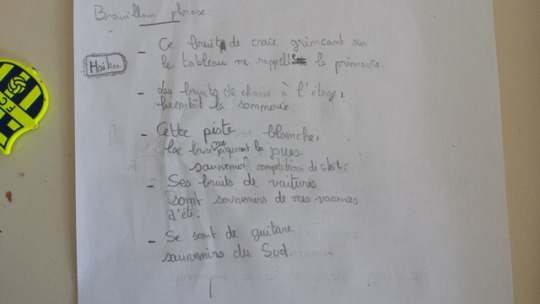 Brouillon phrase
- Ce bruit de craie grincant sur
Haiku
le tableau me rappelle le primaire.
- des bruits de chaise à l'étage,
bientôt la sonnerie
- Cette piste blanche,
souvenir compétition de ski.
- Ses bruits de voitures
sont souvenirs de mes vacances
d'été.
- Se sont de guitare
souvenirs du Sud